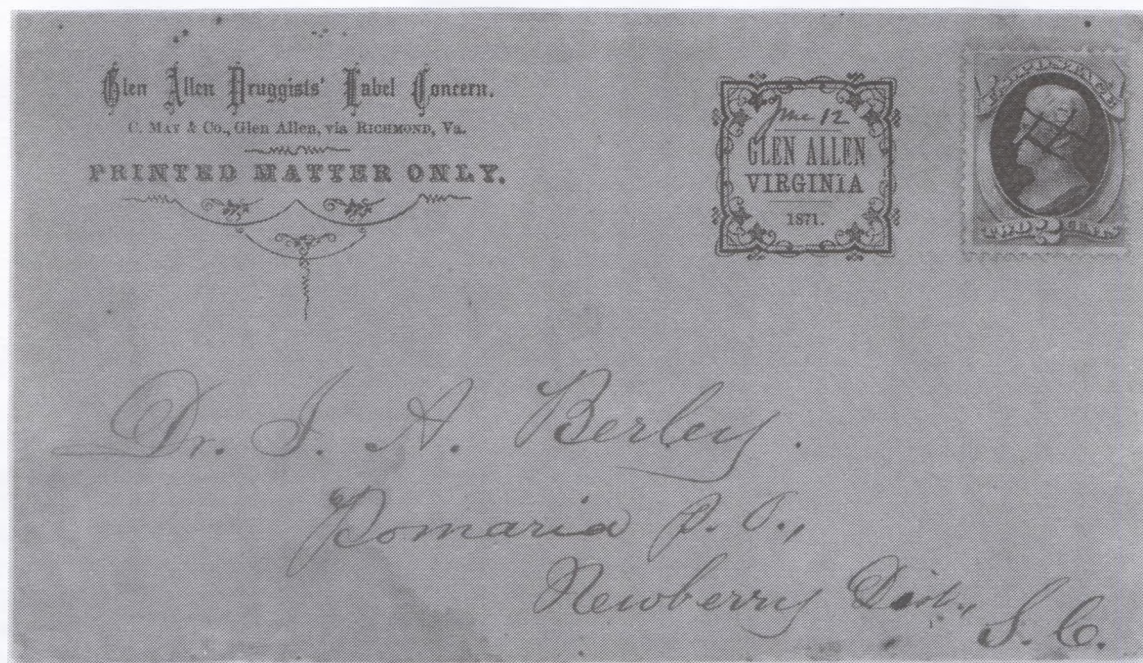 Glen Allen Druggists' Label Concern.
C. MAY & Co., Glen Allen, via RICHMOND, Va.
PRINTED MATTER ONLY.
June 12
GLEN ALLEN
VIRGINIA
1871.
U.S. POSTAGE
TWO 2 CENTS
Dr. J. A. Berley.
Pomaria P. O.,
Newberry Dist.,
S. C.